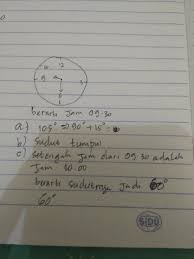 12
9
3
6
berarti jam 09.30
a) 105° => 90° + 15° =
b) sudut tumpul
c) setengah jam dari 09.30 adalah
jam 10.00
berarti sudutnya jadi 60°
60°
SIDU